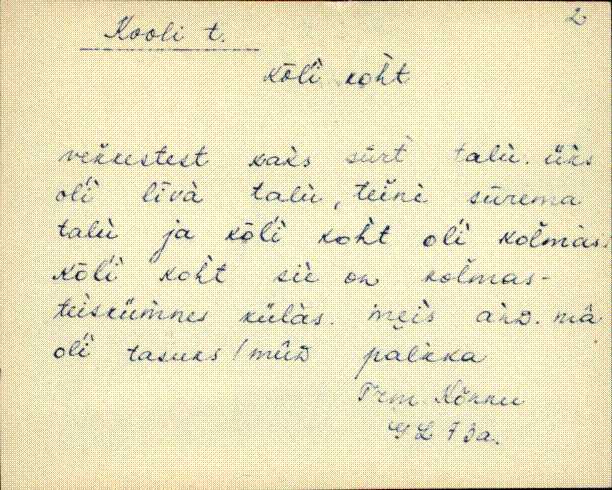 2
Kooli t.
kōl̀i kòht
veìkestest kaks sūrt̀ talù. ùks
ol̀i līvà talù, teìnè sūrema
talù ja kōl̀i kòht ol̀i kolmàs.
kōl̀i kòht sìe on kolmas-
teiskümnes külàs. meìs anD. mâ
ol̀i tasuks / mūD palkka
Trm. Kõnnu
GL 73a.